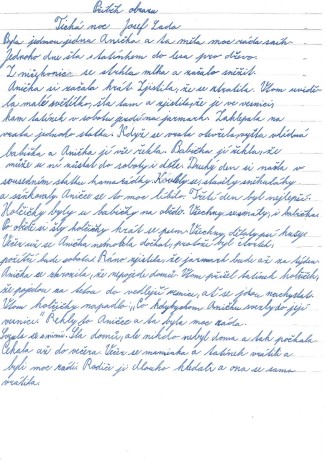 Příběh obrazu
Tichá noc Josef Lada
Byla jednou jedna Anička a ta měla moc ráda sníh.
Jednoho dne šla s tatínkem do lesa pro dříví.
Z ničehonic se strhla mlha a začalo sněžit.
Anička si začala hrát. Zjistila, že se ztratila. Vtom uviděla
malé světýlko, šla tam a zjistila, že je ve vesnici,
kam tatínek v sobotu jezdí na jarmark. Zaklepala na
vrata jednoho statku. Když se vrata otevřela, vyšla vlídná
babička a Anička jí vše řekla. Babička jí řekla, že
může u ní zůstat do soboty i déle. Druhý den si našla v
sousedním statku kamarádky. Koulely se, stavěly sněhuláky
a sáňkovaly. Aničce se to moc líbilo. Třetí den byl nejlepší.
Holčičky byly u babičky na obědě. Všechny se smály, i babička.
Po obědě si šly holčičky hrát se psem. Všechny dětaly psí kusy.
Večer se Anička nemohla dočkat, protože byl čtvrtek,
pozítří bude sobota. Ráno zjistila, že jarmark bude až za týden.
Anička se zkormoutila, že nepojede domů. Vtom přišel tatínek holčiček,
že pojedou na saních do vedlejší vesnice, ať se jdou nachystat.
Vtom holčičky napadlo: „Co kdybychom Aničku svezly do její
vesnice." Řekly to Aničce a ta byla moc ráda.
Spěchala se s nimi. Šla domů, ale nikdo nebyl doma a tak počkala.
Čekala až do večera. Večer se maminka a tatínek vrátili a
byli moc rádi. Rodiče ji dlouho hledali a ona se sama
vrátila.